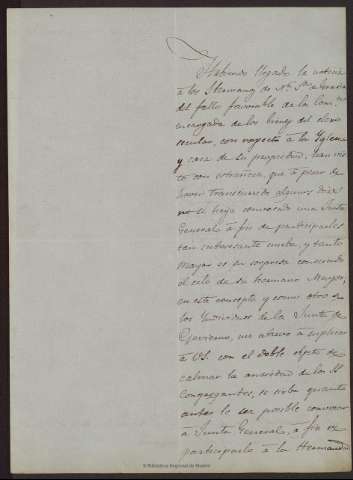 Habiendo llegado la noticia
á los Hermanos de Nª Sª
del fallo favorable de la Com.on
encargada de los bienes del clero
secular, con respecto á la Yglesia
y casa de su propiedad, han vis
to con estrañeza, que á pesar de
haver transcurrido algunos dias
no se haya convocado una Junta
General á fin de participarles
tan interesante nueba, y tanto
mayor es su sorpresa conociendo
el celo de su Hermano Mayor,
en este concepto y como otro de
los Yndividuos de la Junta de
Govierno, me atrevo á suplicar
á VS. con el doble objeto de
calmar la ansiedad de los SS
Congregantes, se sirba quanto
antes le sea posible convocar
á Junta General, á fin de
participarlo á la Hermandad
© Biblioteca Regional de Madrid